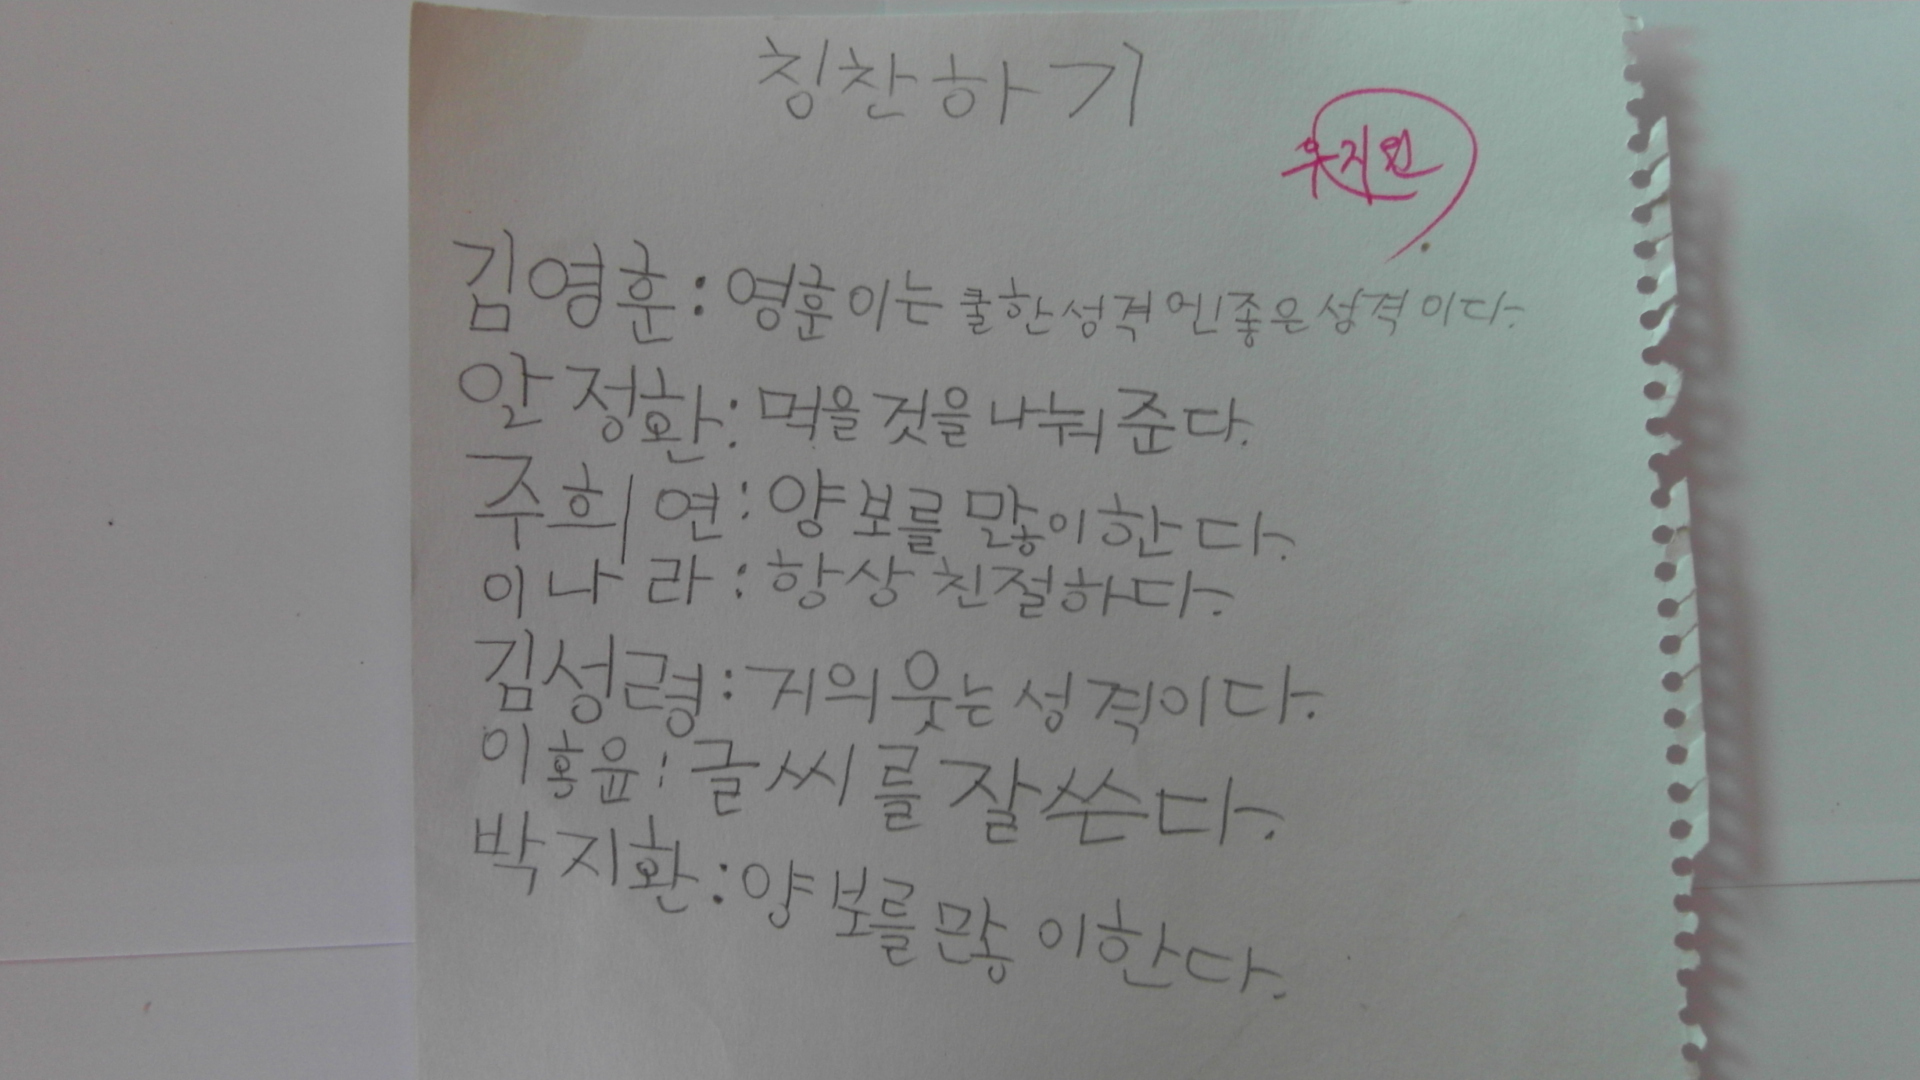 칭찬하기
우지원
김영훈: 영훈이는 쿨한성격엔좋은성격이다.
안정환: 먹을것을나눠준다.
주희연: 양보를많이한다.
이나라: 항상친절하다.
김성령: 거의웃는성격이다.
이홍윤: 글씨를잘쓴다.
박지환: 양보를많이한다.